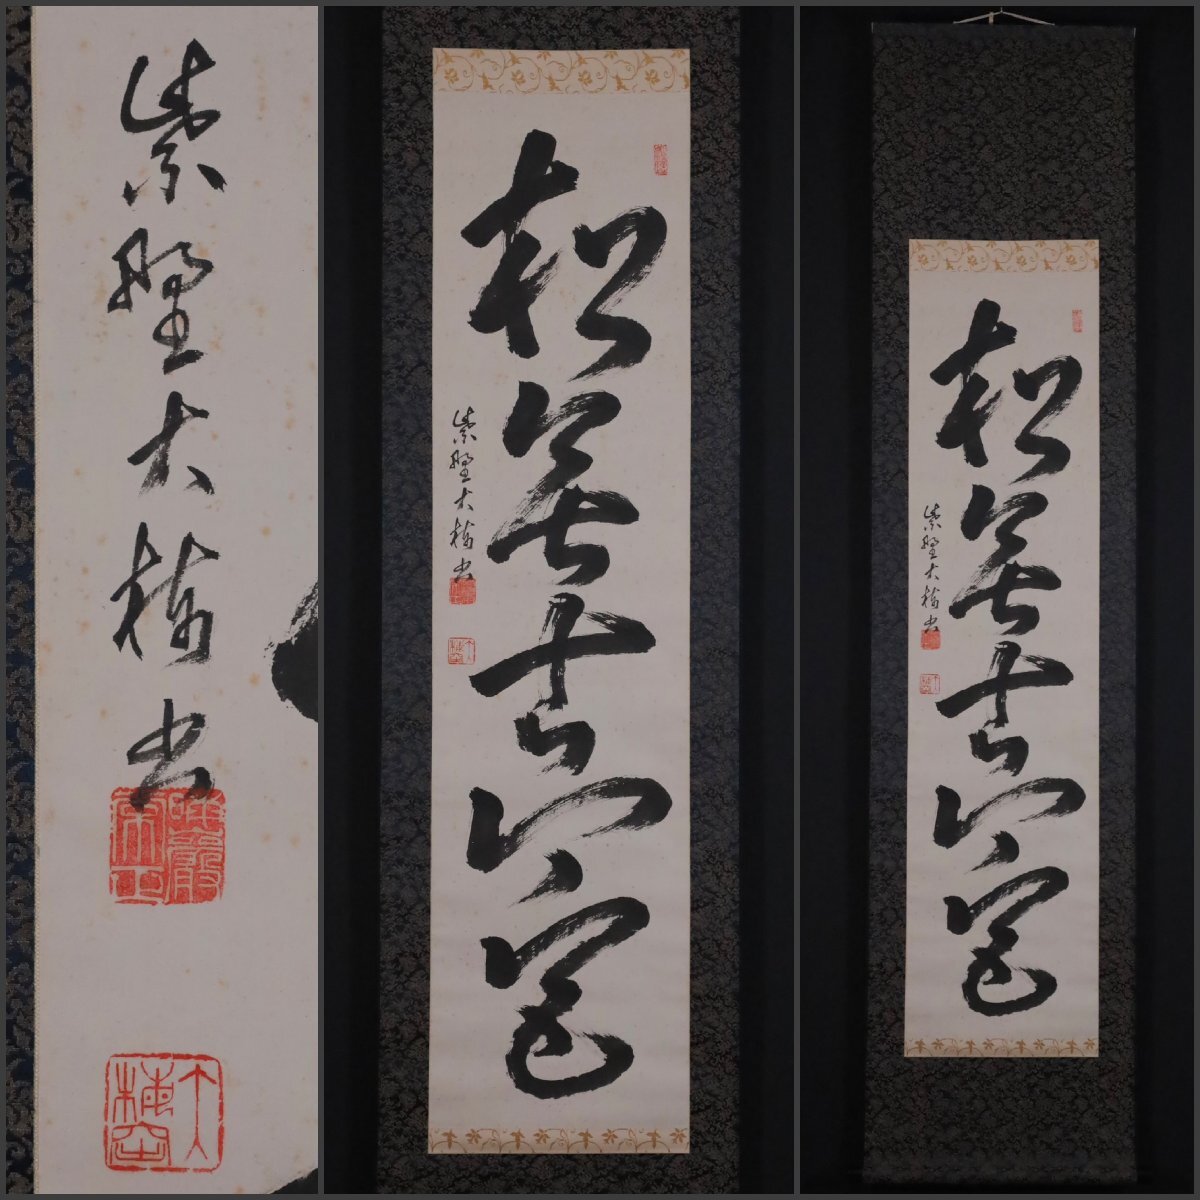 紫野大梅書
松無古今色
紫野大梅書
松無古今色
紫野大梅書